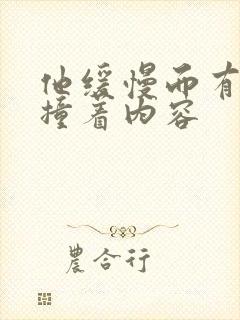 他缓慢而有
撞着内容
農合行